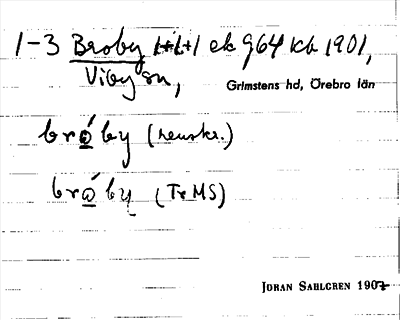 1-3 Broby 1+1+1 ek 964 kb 1901,
Viby sn,
Grimstens hd, Örebro län
bró̲by (renskr.)
brώ̲by (TrMS)
JÖRAN SAHLGREN 1907